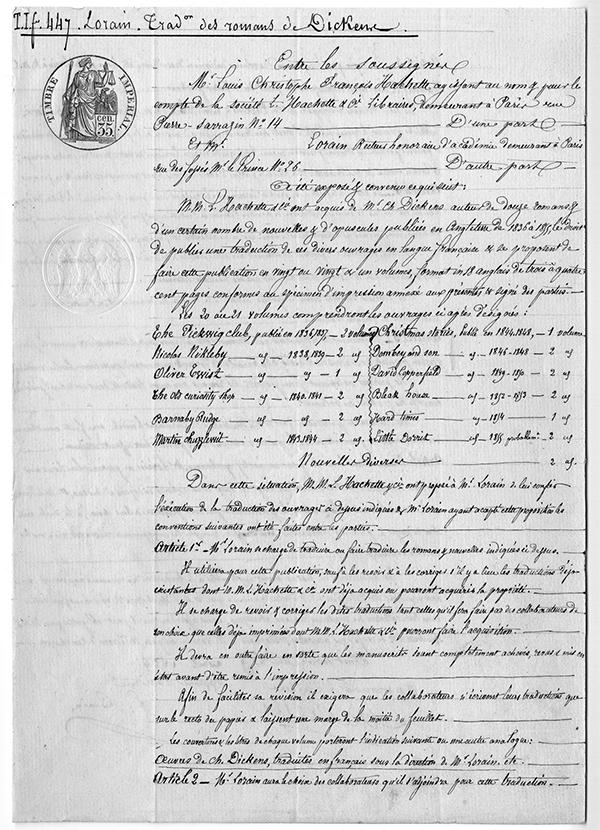 T.If. 447. Lorain. Trad.on des romans de Dickens.
TIMBRE IMPÉRIAL
35 cen.
Entre les soussignés
Mr. Louis Christophe François Hachette agissant au nom & pour le
compte de la société L. Hachette & Cie Libraires, demeurant à Paris rue
Pierre-Sarrazin No. 14 D'une part
Et Mr. Lorain Recteur honoraire d'académie demeurant à Paris
rue des fossés Mr. le Prince No. 26 D'autre part
Il a été exposé & convenu ce qui suit:
M.M. L. Hachette & Cie ont acquis de Mr. Ch. Dickens auteur de douze romans &
d'un certain nombre de nouvelles & d'opuscules publiés en Angleterre de 1836 à 1855, le droit
de publier une traduction de ces divers ouvrages en langue française & se proposent de
faire cette publication en vingt ou vingt & un volumes, format in 18 anglais de trois à quatre
cent pages conformes au spécimen d'impression annexé aux présentes & signé des parties.
Les 20 ou 21 volumes comprendront les ouvrages ci après désignés:
The Pickwig club, publié en 1836, 1837. — 2 volumes Christmas stories, publié en 1844, 1848, — 1 volume
Nicolas Nikleby — 1838, 1839 — 2 Dombey and son — 1846-1848 — 2
Oliver Twist — 1 David Copperfield — 1849-1850 — 2
The old curiosity shop — 1840, 1841 — 2 Bleak house — 1852-1853 — 2
Barnaby Rudge — 2 Hard times — 1854 — 1
Martin Chuzzlewit — 1843, 1844 — 2 Little Dorrit — 1855 — 2
Nouvelles diverses 2
Dans cette situation, M.M. L. Hachette & Cie ont proposé à Mr. Lorain de lui confier
l'exécution de la traduction des ouvrages ci dessus indiqués & Mr. Lorain ayant accepté cette proposition les
conventions suivantes ont été faites entre les parties.
Article 1er — Mr. Lorain se charge de traduire ou faire traduire les romans & nouvelles indiqués ci dessus.
Il utilisera pour cette publication, sauf à les revoir & à les corriger s'il y a lieu les traductions déjà
existantes dont M.M. L. Hachette & Cie ont déjà acquis ou pourront acquérir la propriété.
Il se charge de revoir & corriger les dites traductions tant celles qu'il fera faire par des collaborateurs de
son choix que celles déjà imprimées dont M.M. L. Hachette & Cie pourront faire l'acquisition.
Il devra en outre faire en sorte que les manuscrits soient complètement achevés, revus & mis en
état avant d'être remis à l'impression.
Afin de faciliter sa révision il exigera que les collaborateurs n'écrivent leurs traductions que
sur le recto du papier & laissent une marge de la moitié du feuillet.
Les couvertures & les titres de chaque volume porteront l'indication suivante ou une autre analogue:
Œuvres de Ch. Dickens, traduites en français sous la direction de Mr. Lorain. etc.
Article 2 — Mr. Lorain aura le choix des collaborateurs qu'il s'adjoindra pour cette traduction.